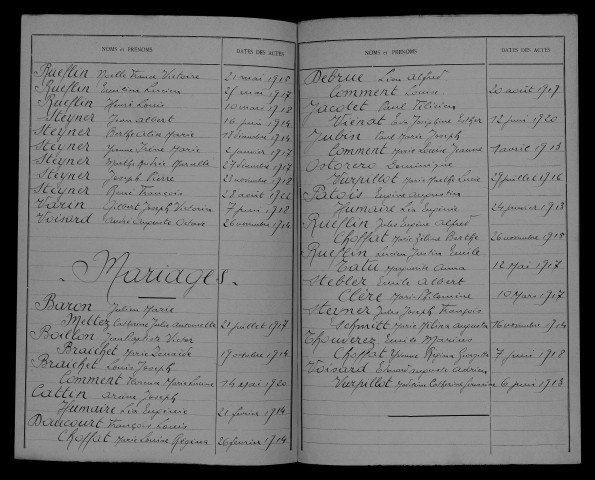 NOMS et PRÉNOMS DATES DES ACTES
Rueflin Noëlle France Victoire 21 mai 1915
Rueflin Emilien Lucien 25 mai 1917
Rueflin Henri Louis 10 mars 1918
Steyner Jean Albert 16 juin 1914
Steyner Berthe Alix Marie 18 1914
Steyner Yvonne Irène Marie 2 janvier 1917
Steyner Marthe Marcelle 27 1917
Steyner Joseph Pierre 1918
Steyner René François 28 août
Varin Gilbert Joseph Victorin 7 juin 1918
Voisard André Auguste Octave 26 novembre 1914
Mariages
Baron Julien Marie
Mettez Catherine Julie Antoinette 21 juillet 1917
Boillon Jean Baptiste Victor
Braichet Marie 17 octobre 1914
Braichet Louis Joseph
Comment Florence Marie 14 mai 1920
Cattin Arsène Joseph
Humaire Lia Eugénie 21 février 1914
Daucourt François Louis
Choffat Marie Louise Regina 26 février 1914
NOMS et PRÉNOMS DATES DES ACTES
Debrue Léon Alfred
Comment Louise 20 août 1917
Jacolet Paul Félicien
Viénat Eva Joséphine Esther 12 juin 1920
Jubin Paul Marie Joseph
Comment Marie Louise Jeanne 1 avril 1913
Osloréro Dominique
Vurpillot Marie Marthe Lucie 29 juillet 1916
Patois Eugène Augustin
Humaire Lia Eugénie 24 janvier 1913
Rueflin Jules Eugène Alfred
Choffat Marie Hélène Berthe 26 novembre 1915
Rueflin Lucien Justin Emile
Tatu Marguerite Anna 12 mai 1917
Stebler Emile Albert
Clère Marie Philomine 10 mars 1917
Steyner Jules Joseph François
Schmitt Marie Hélène Augusta 16 novembre 1914
Thouverez Emile Marius
Choffat Yvonne Regina Georgette 7 juin 1918
Voisard Edouard Auguste Adrien
Vurpillot Catherine 6 juin 1913